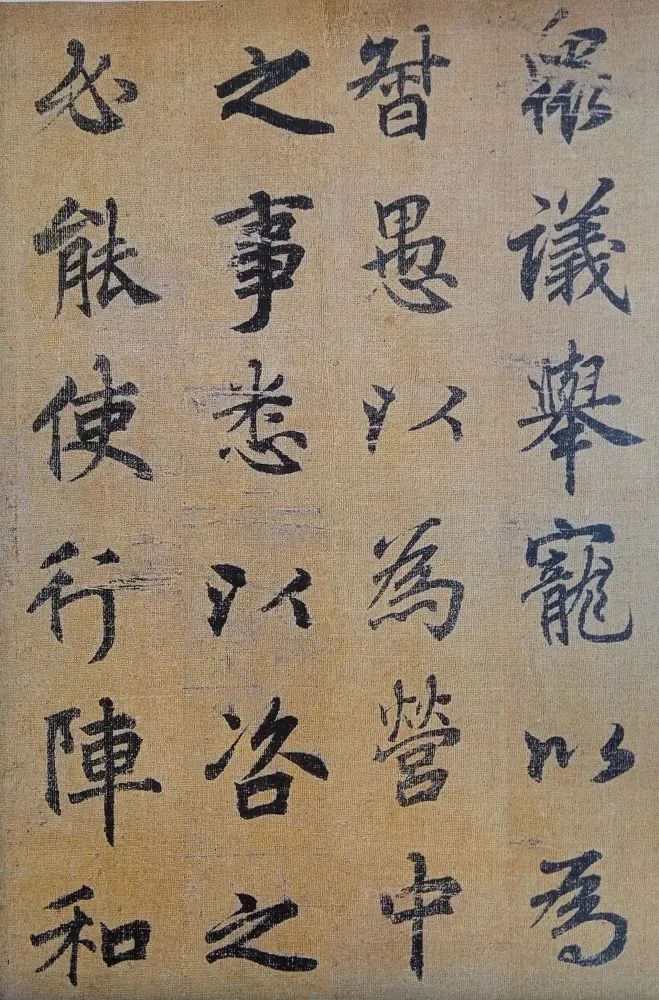 衆議舉寵以為
督愚以為營中
之事悉以咨之
必能使行陣和